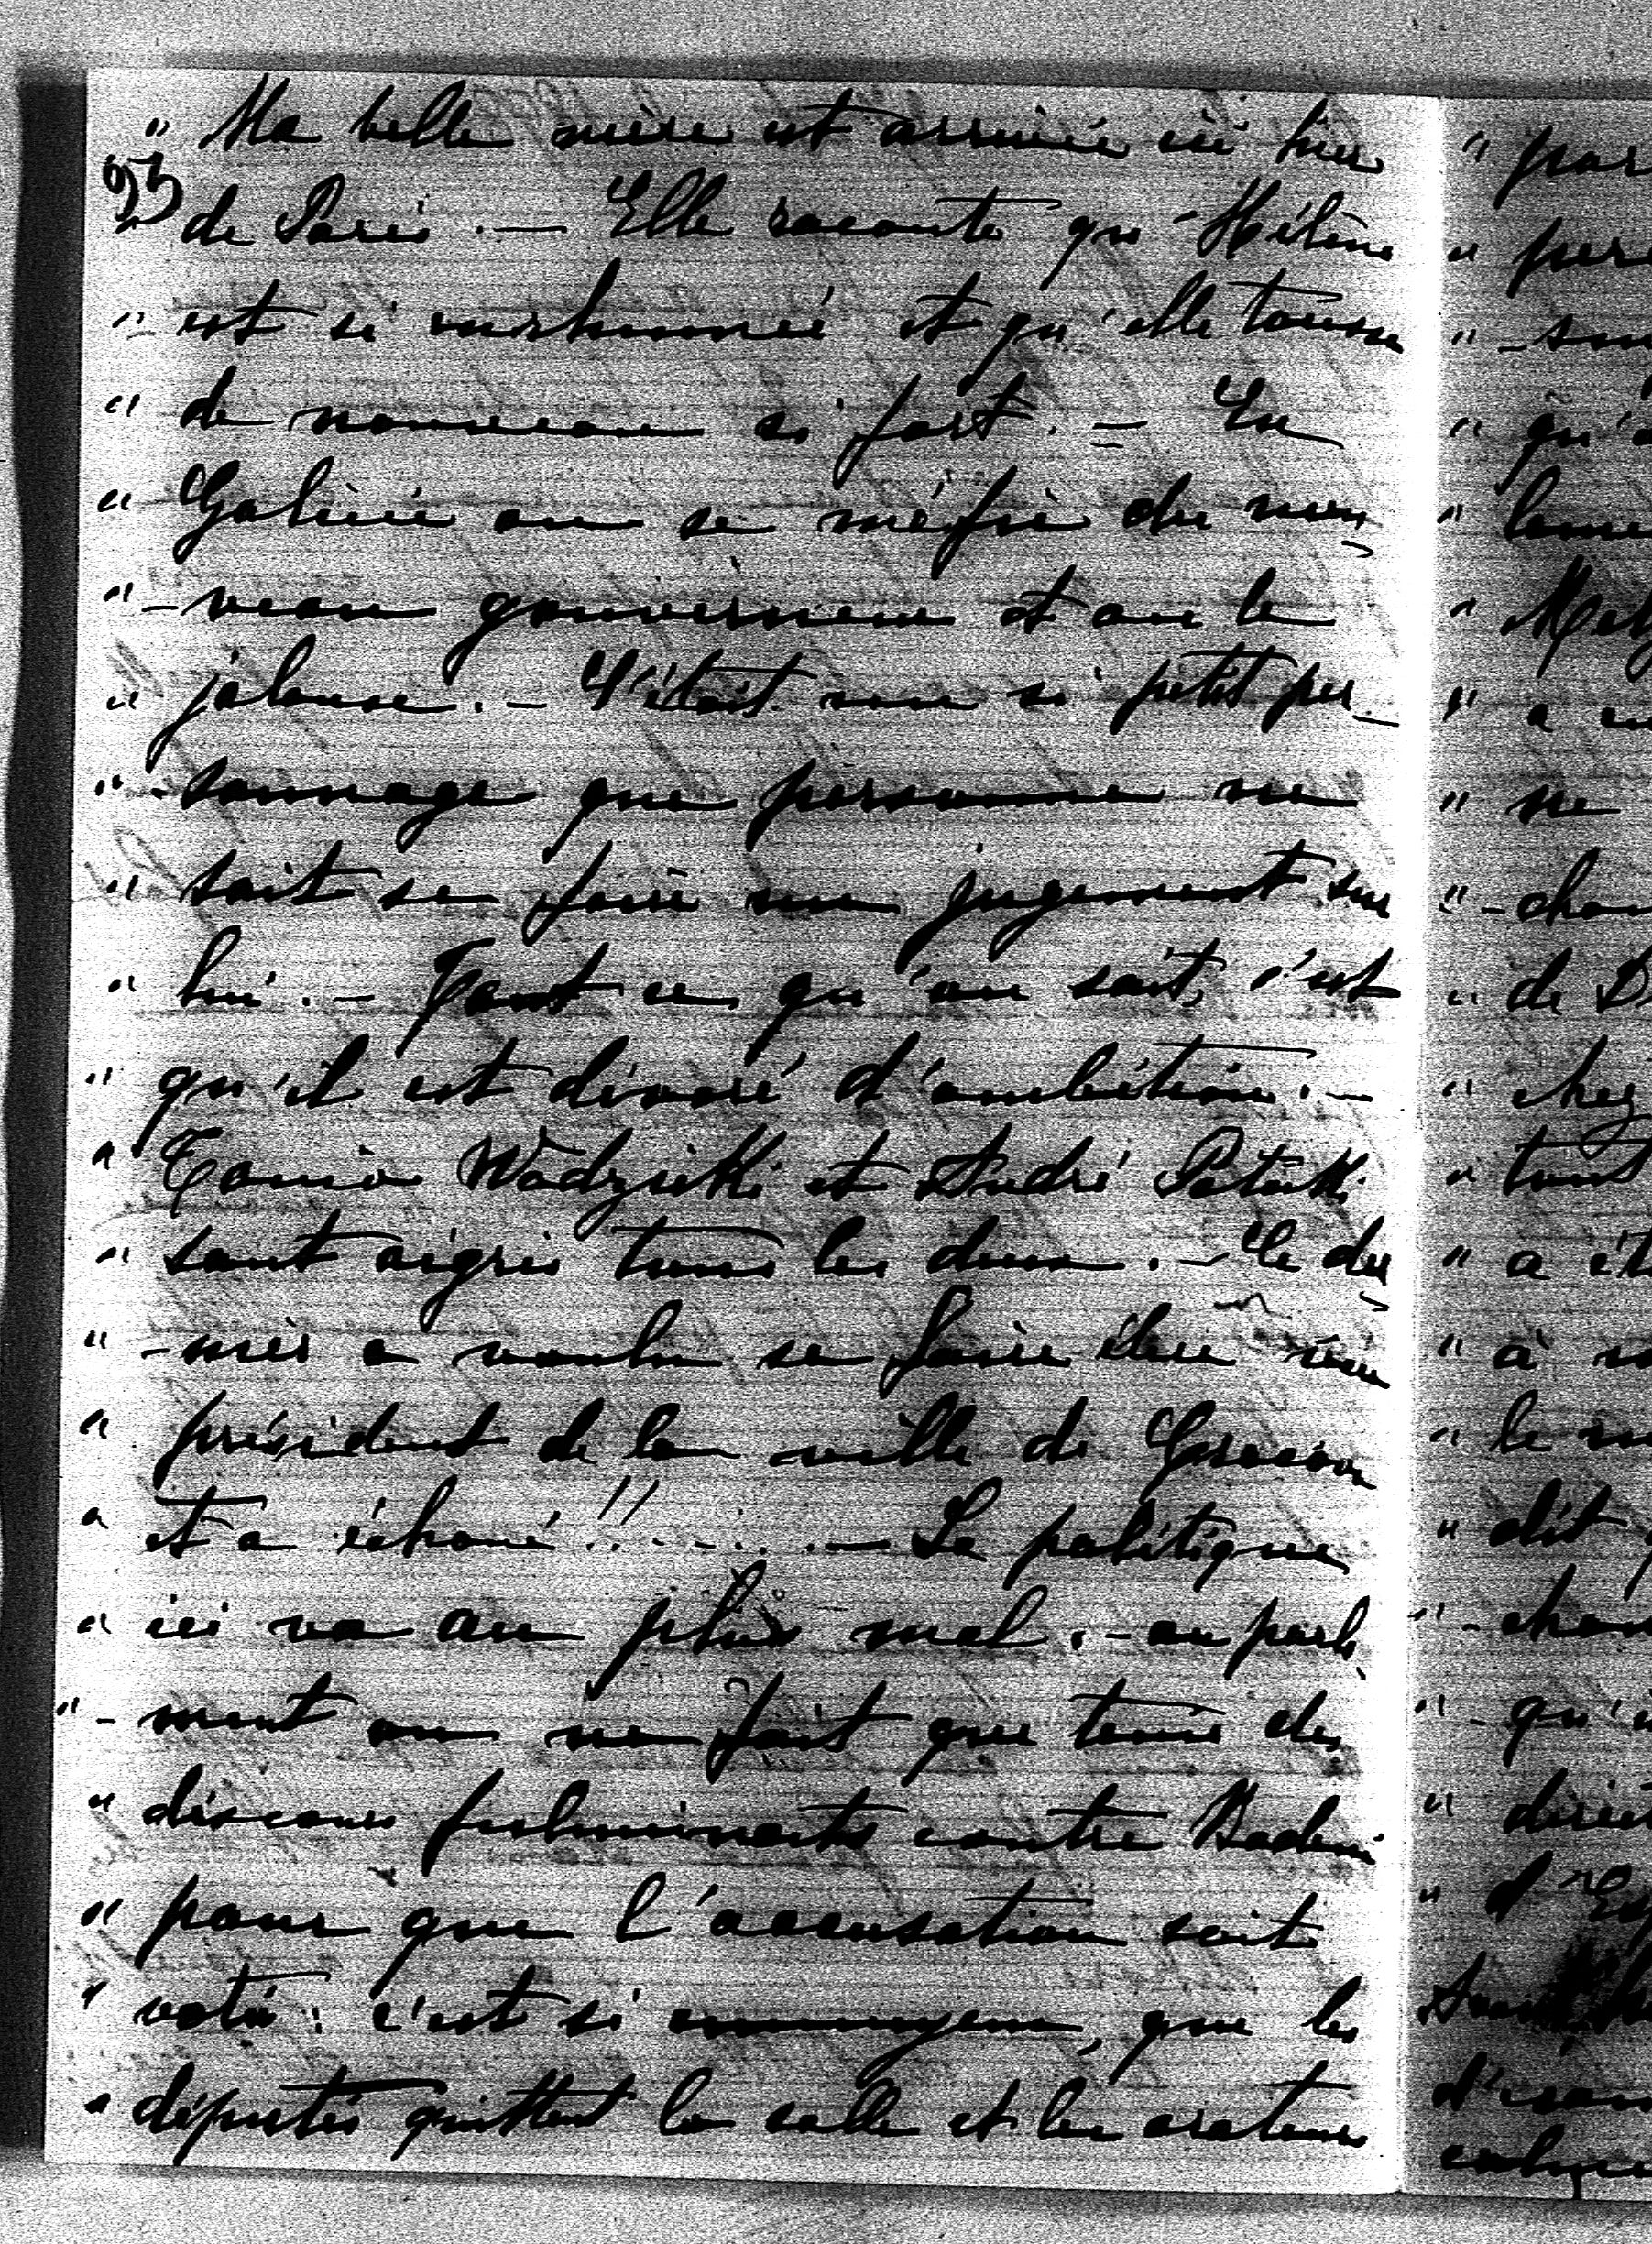 " Ma belle mère est arrivée ici hier
95 de Paris. — Elle raconte qu'Hélène
" est si enrhumée et qu'elle tousse
" de nouveau si fort. — En
" Galicie on se méfie du nou
" - veau gouverneur et on le
" jalouse. — C'était un si petit per_
" - sonnage que personne ne
" sait se faire un jugement sur
" lui. — Tout ce qu'on sait, c'est
" qu'il est dévoré d'ambition. —
" Tonio Wodzicki et André Potocki
" sont aigris tous les deux. — Ce der
" - nier a voulu se faire élire vice
" président de la ville de Cracovie
" et a échoué!! ..... — La politique
" ici va au plus mal. — au parle
" - ment on ne fait que tenir des
" discours fulminants contre Badeni
" pour que l'accusation soit
" votée: c'est si ennuyeux, que les
" députés quittent la salle et les orateurs
" par
" per
" -
" qu'
"
"
" a
" ne
" -
" de
" chez
" tout
" a
" à
" le
" dit
" -
" - qu'
"
" d'